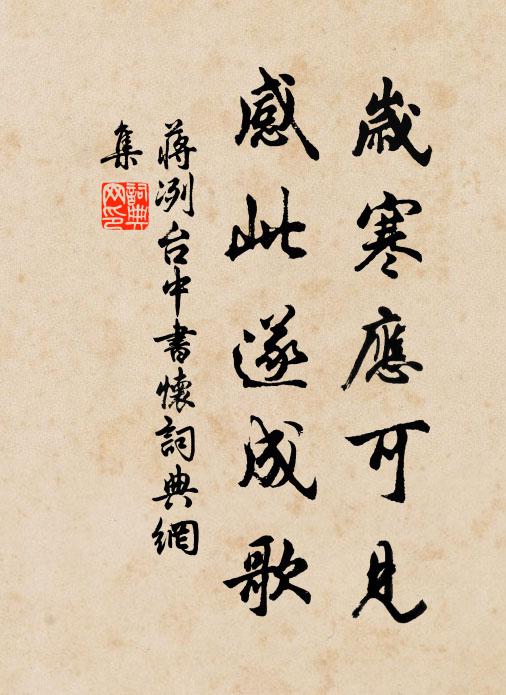 歲寒應可見
感此遂成歌
蔣冽台中書懷詞典網
集
詞典
网印